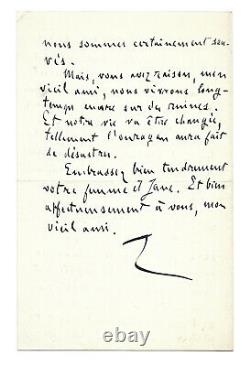 nous sommes certainement sau-
vés.
Mais, vous avez raison, mon
vieil ami, nous vivrons long-
temps encore sur des ruines.
Et notre vie va être changée,
tellement l'ouragan aura fait
de désastres.
Embrassez bien tendrement
votre femme et Jane. Et bien
affectueusement à vous, mon
vieil ami.
Z
ebay